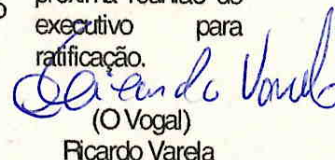 o
próxima reunião do
executivo para
ratificação.
Ricardo Varela
(O Vogal)
Ricardo Varela